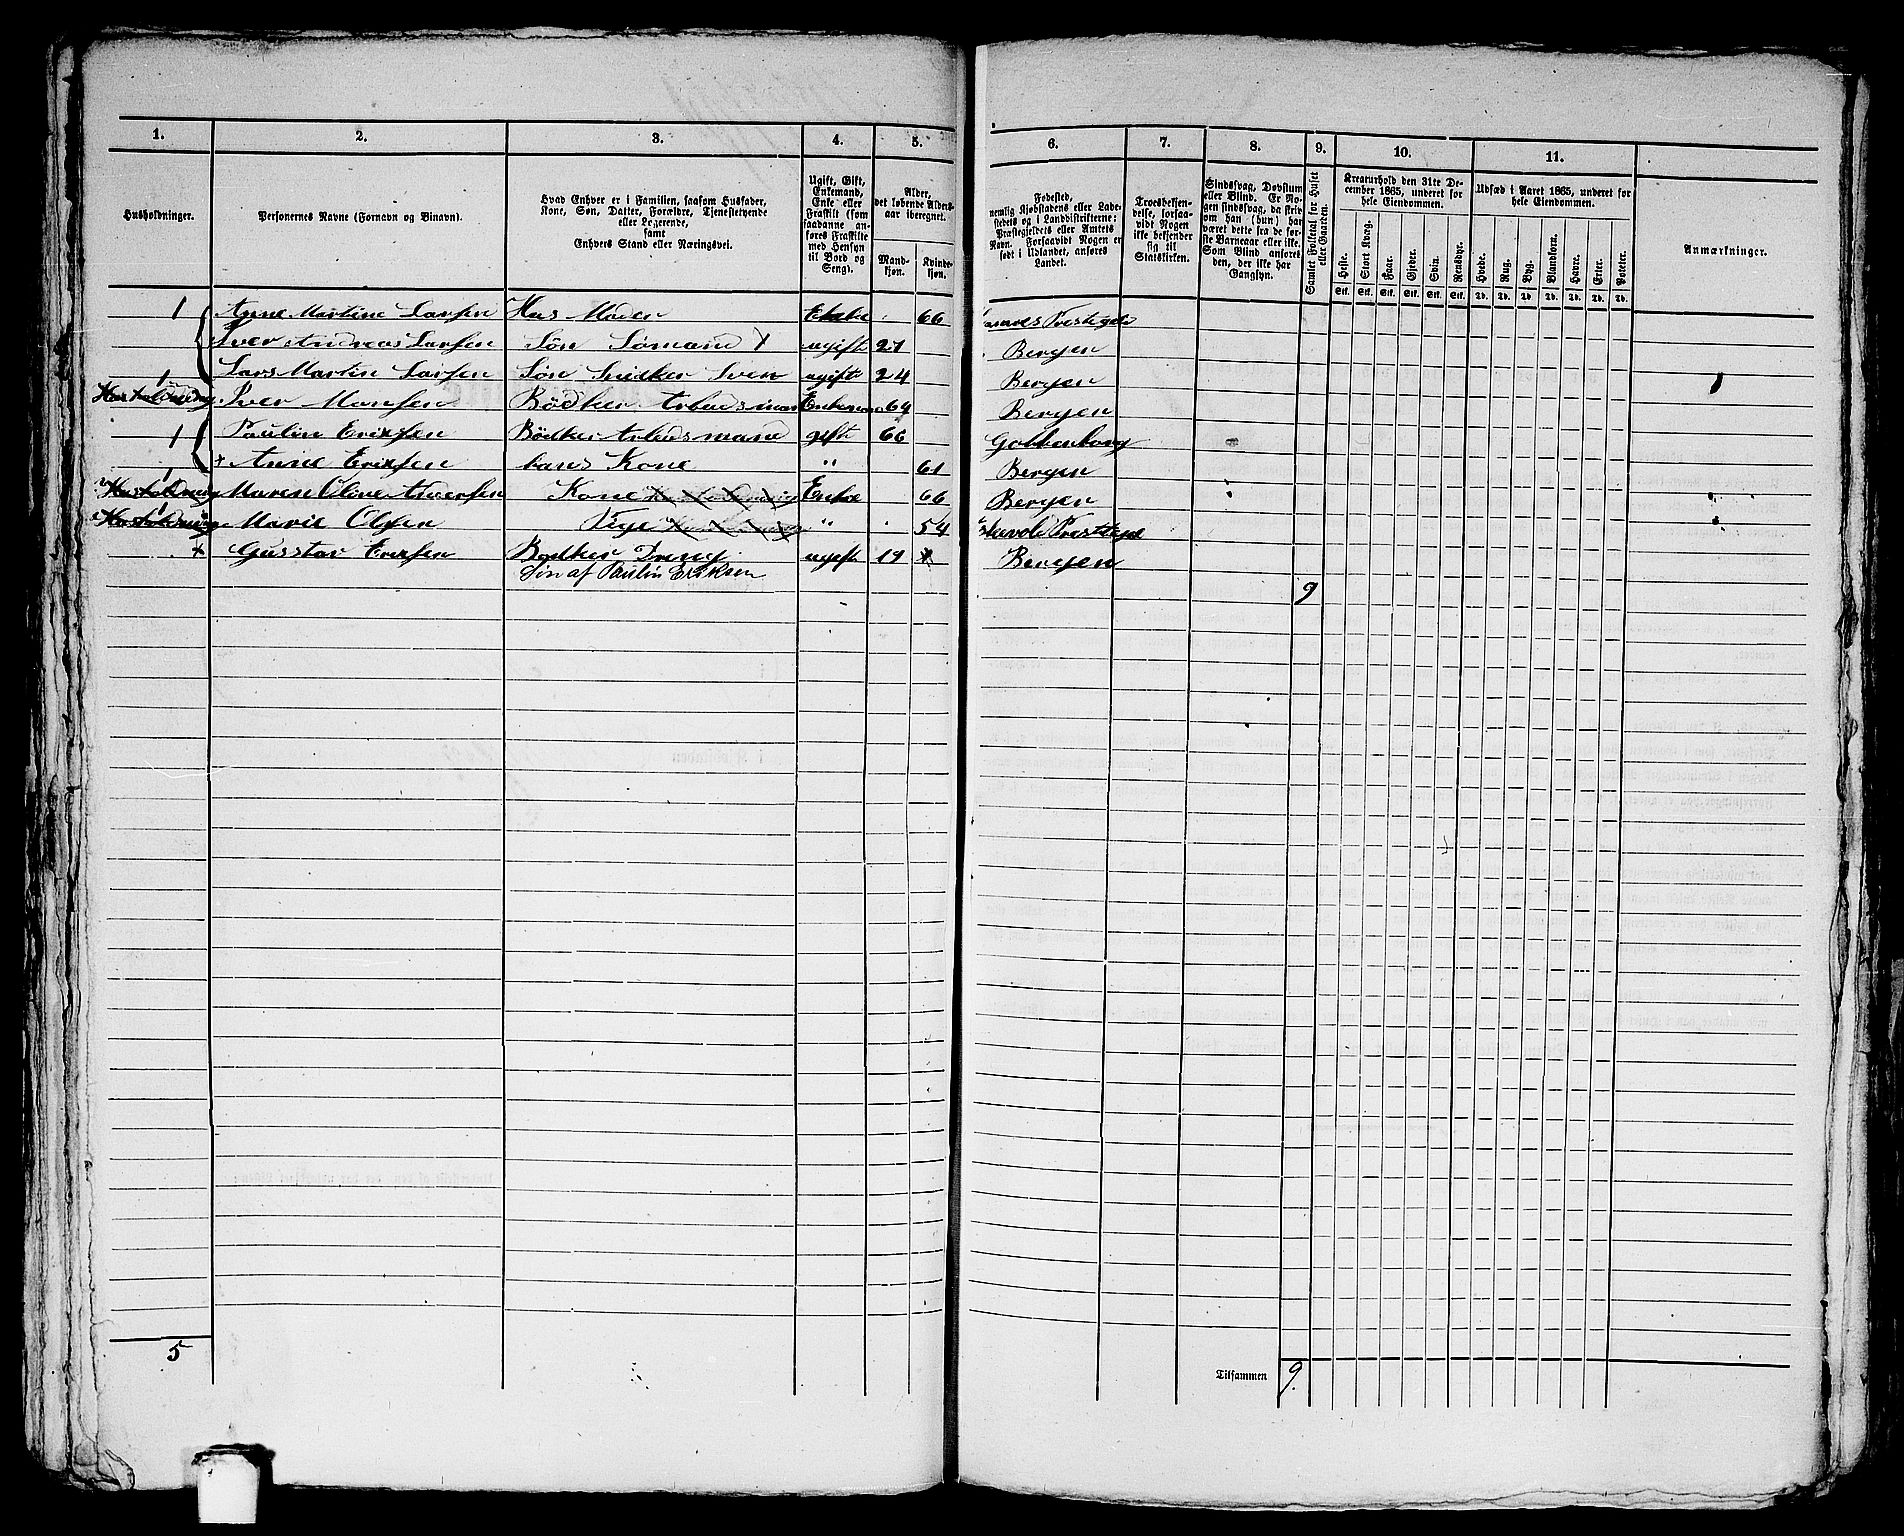 1. 2. 3. 4. 5. 6. 7. 8. 9. 10. 11.
Husholdninger.
Personernes Navne (Fornavn og Binavn).
Hvad Enhver er i Familien, saasom Husfader,
Kone, Søn, Datter, Forældre, Tjenestetyende
eller Logerende,
samt
Enhvers Stand eller Næringsvei.
Ugift, Gift,
Enkemand,
Enke eller
Fraskilt (som
saadanne an-
føres Fraskilte
med Hensyn
til Bord og
Seng).
Alder,
det løbende Alders-
aar iberegnet.
Mand-
kjøn.
Kvinde-
kjøn.
Fødested,
nemlig Kjøbstadens eller Lade-
stedets og i Landdistrikterne:
Præstegjeldets eller Amtets
Navn. Forsaavidt Nogen er
født i Udlandet, anføres
Landet.
Troesbekjen-
delse, forsaa-
vidt Nogen
ikke bekjender
sig til
Statskirken.
Sindssvag, Døvstum
eller Blind. Er No-
gen sindssvag, da skriv
om han (hun) har
været dette fra de før-
ste Barneaar eller ikke.
Som Blind anføres
den, der ikke har
Gangsyn.
Samlet Folketal for Huset
eller Gaarden.
Kreaturhold den 31te De-
cember 1865, underet for
hele Eiendommen.
Heste. Stort Kvæg. Faar. Gjeder. Svin. Rensdyr.
Stk. Stk. Stk. Stk. Stk. Stk.
Udsæd i Aaret 1865, underet for
hele Eiendommen.
Hvede. Rug. Byg. Blandkorn. Havre. Erter. Poteter.
Td. Td. Td. Td. Td. Td. Td.
Anmærkninger.
1 Anne Martine Larsen Hus Moder Enke 66 Præstegjeld
Iver Andreas Larsen Søn Sømand X ugift 21 Bergen
Lars Martin Larsen Søn Snidker Sven ugift 24 Bergen
1 Husholdning Iver Monsen Bødker Arbeidsmand Enkemand 64 Bergen
1 Paulin Erixsen Bødker Arbeidsmand gift 66 Gottenborg
+ Anne Erixsen hans Kone " 61 Bergen
1 Husholdning Maren Oline Kone Husholdning Enke 66 Bergen
1 Husholdning Marie Olsen Pige Husholdning " 54 Præstegjeld
+ Gusstav Erixsen Bødker Dreng ugift 19 Bergen
Søn af Paulin Eriksen
9
5
Tilsammen 9.